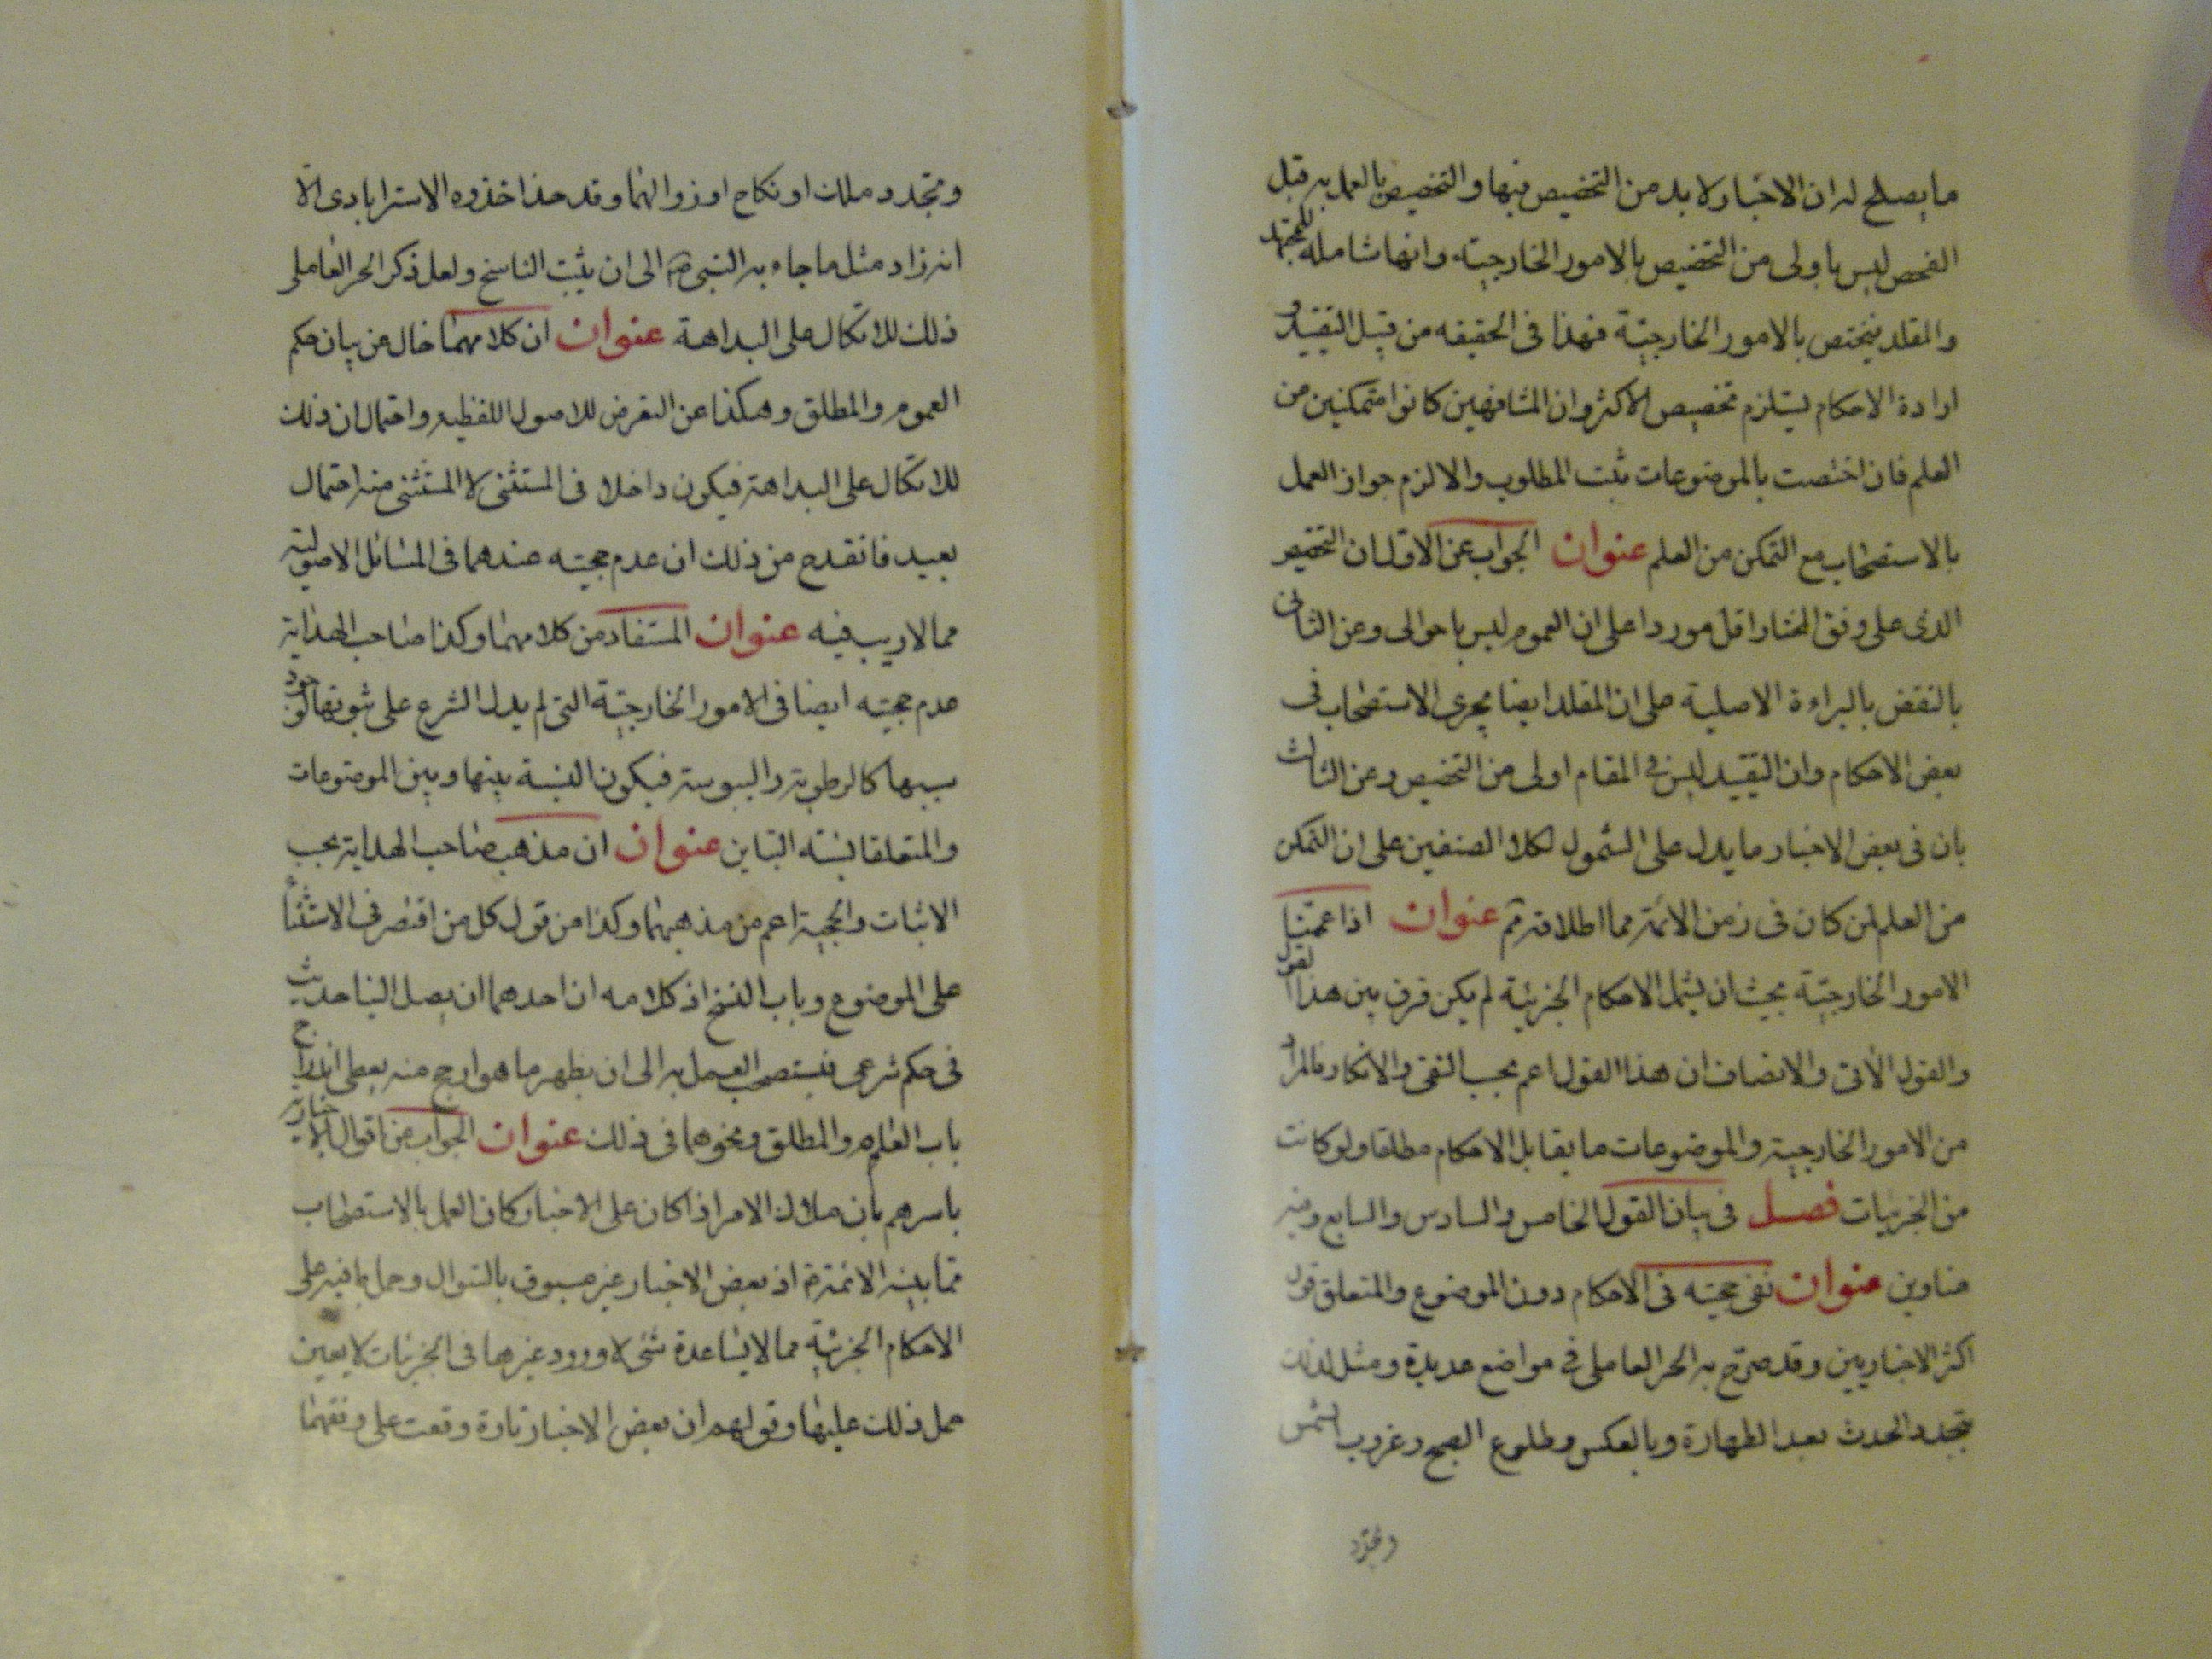 ما يصلح له ان الاخبار لا بد من التخصيص فيها والتخصيص بالعمل به قبل
الفحص ليس باولى من التخصيص بالامور الخارجيته وانها شاملة للمجتهد
والمقلد فيختص بالامور الخارجيّة فهذا فى الحقيقه من قبيل التقييد و
ارادة الاحكام يستلزم تخصيص الاكثر وان المشافهين كانوا متمكنين من
العلم فان اختصت بالموضوعات ثبت المطلوب والا لزم جواز العمل
بالاستصحاب مع التمكن من العلم عنوان الجواب عن الاول ان التخصيص
الذى على وفق المختار اقل موردا على ان العموم ليس باحوالى وعن الثانى
بالنقض بالبراءة الاصلية على ان المقلد ايضا يجرى الاستصحاب فى
بعض الاحكام وان التقييد ليس فى المقام اولى من التخصيص وعن الثالث
بان فى بعض الاخبار ما يدل على الشمول لكلا الصنفين على ان التمكن
من العلم لمن كان فى زمن الائمة مما اطلاقه ثم عنوان اذا عممنا
الامور الخارجيّة بحيث ان يشمل الاحكام الجزئية لم يكن فرق بين هذا القول
والقول الآتى والانصاف ان هذا القول اعم بحسب النفى والانكار فالمراد
من الامور الخارجية والموضوعات ما يقابل الاحكام مطلقا ولو كانت
من الجزئيات فصل فى بيان القول الخامس والسادس والسابع وفيه
عناوين عنوان نفى حجيته فى الاحكام دون الموضوع والمتعلق قول
اكثر الاخباريين وقد صرّح به الحر العاملى فى مواضع عديدة ومثل لذلك
بتجدد الحدث بعد الطهارة وبالعكس وطلوع الصبح وغروب الشمس
وتجدد
وتجدد ملك او نكاح او زوالهما وقد حذا حذوه الاسترابادى الّا
انه زاد مثل ما جاء به النبى ص الى ان يثبت الناسخ ولعل ذكر الحر العاملى
ذلك للاتكال على البداهة عنوان ان كلامهما خال عن بيان حكم
العموم والمطلق وهكذا عن التعرض للاصول اللفظيه واحتمال ان ذلك
للاتكال على البداهة فيكون داخلا فى المستثنى لا المستثنى منه احتمال
بعيد فانقدح من ذلك ان عدم حجيته عندهما فى المسائل الاصوليّة
مما لا ريب فيه عنوان المستفاد من كلامهما وكذا صاحب الهداية
عدم حجيته ايضا فى الامور الخارجيّة التى لم يدل الشرع على ثبوتها لوجود
سببها كالرطوبة واليبوسة فيكون النسبة بينها وبين الموضوعات
والمتعلقا نسبة التباين عنوان ان مذهب صاحب الهداية بحسب
الاثبات والحجية اعم من مذهبهما وكذا من قول كل من اقتصر فى الاستثناء
على الموضوع وباب النسخ اذ كلامه ان احدهما ان يصل الينا حديث
فى حكم شرعى فيستصحب العمل به الى ان يظهر ما هو ارجح منه يعطى اندراج
باب العام والمطلق ونحوهما فى ذلك عنوان الجواب عن اقوال الاخبارية
باسرهم بان ملاك الامر اذا كان على الاخبار كان العمل بالاستصحاب
مما بينه الائمة ع اذ بعض الاخبار غير مسبوق بالسؤال وحمل ما فيه على
الاحكام الجزئية مما لا يساعدة شئ لا وورود غيرها فى الجزئيات لا يعين
حمل ذلك عليها وقولهم ان بعض الاخبار تارة وقعت على وفقهما